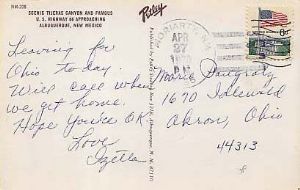 NM-208
SCENIC TIJERAS CANYON AND FAMOUS
U. S. HIGHWAY 66 APPROACHING
ALBUQUERQUE, NEW MEXICO
Petley
MORIARTY, NM
APR
27
PM
6c
Leaving for
Ohio today.
Will call when
we get home.
Hope you're OK
Love
Izetta
Marie
1670 Idlewild
Akron, Ohio
44313